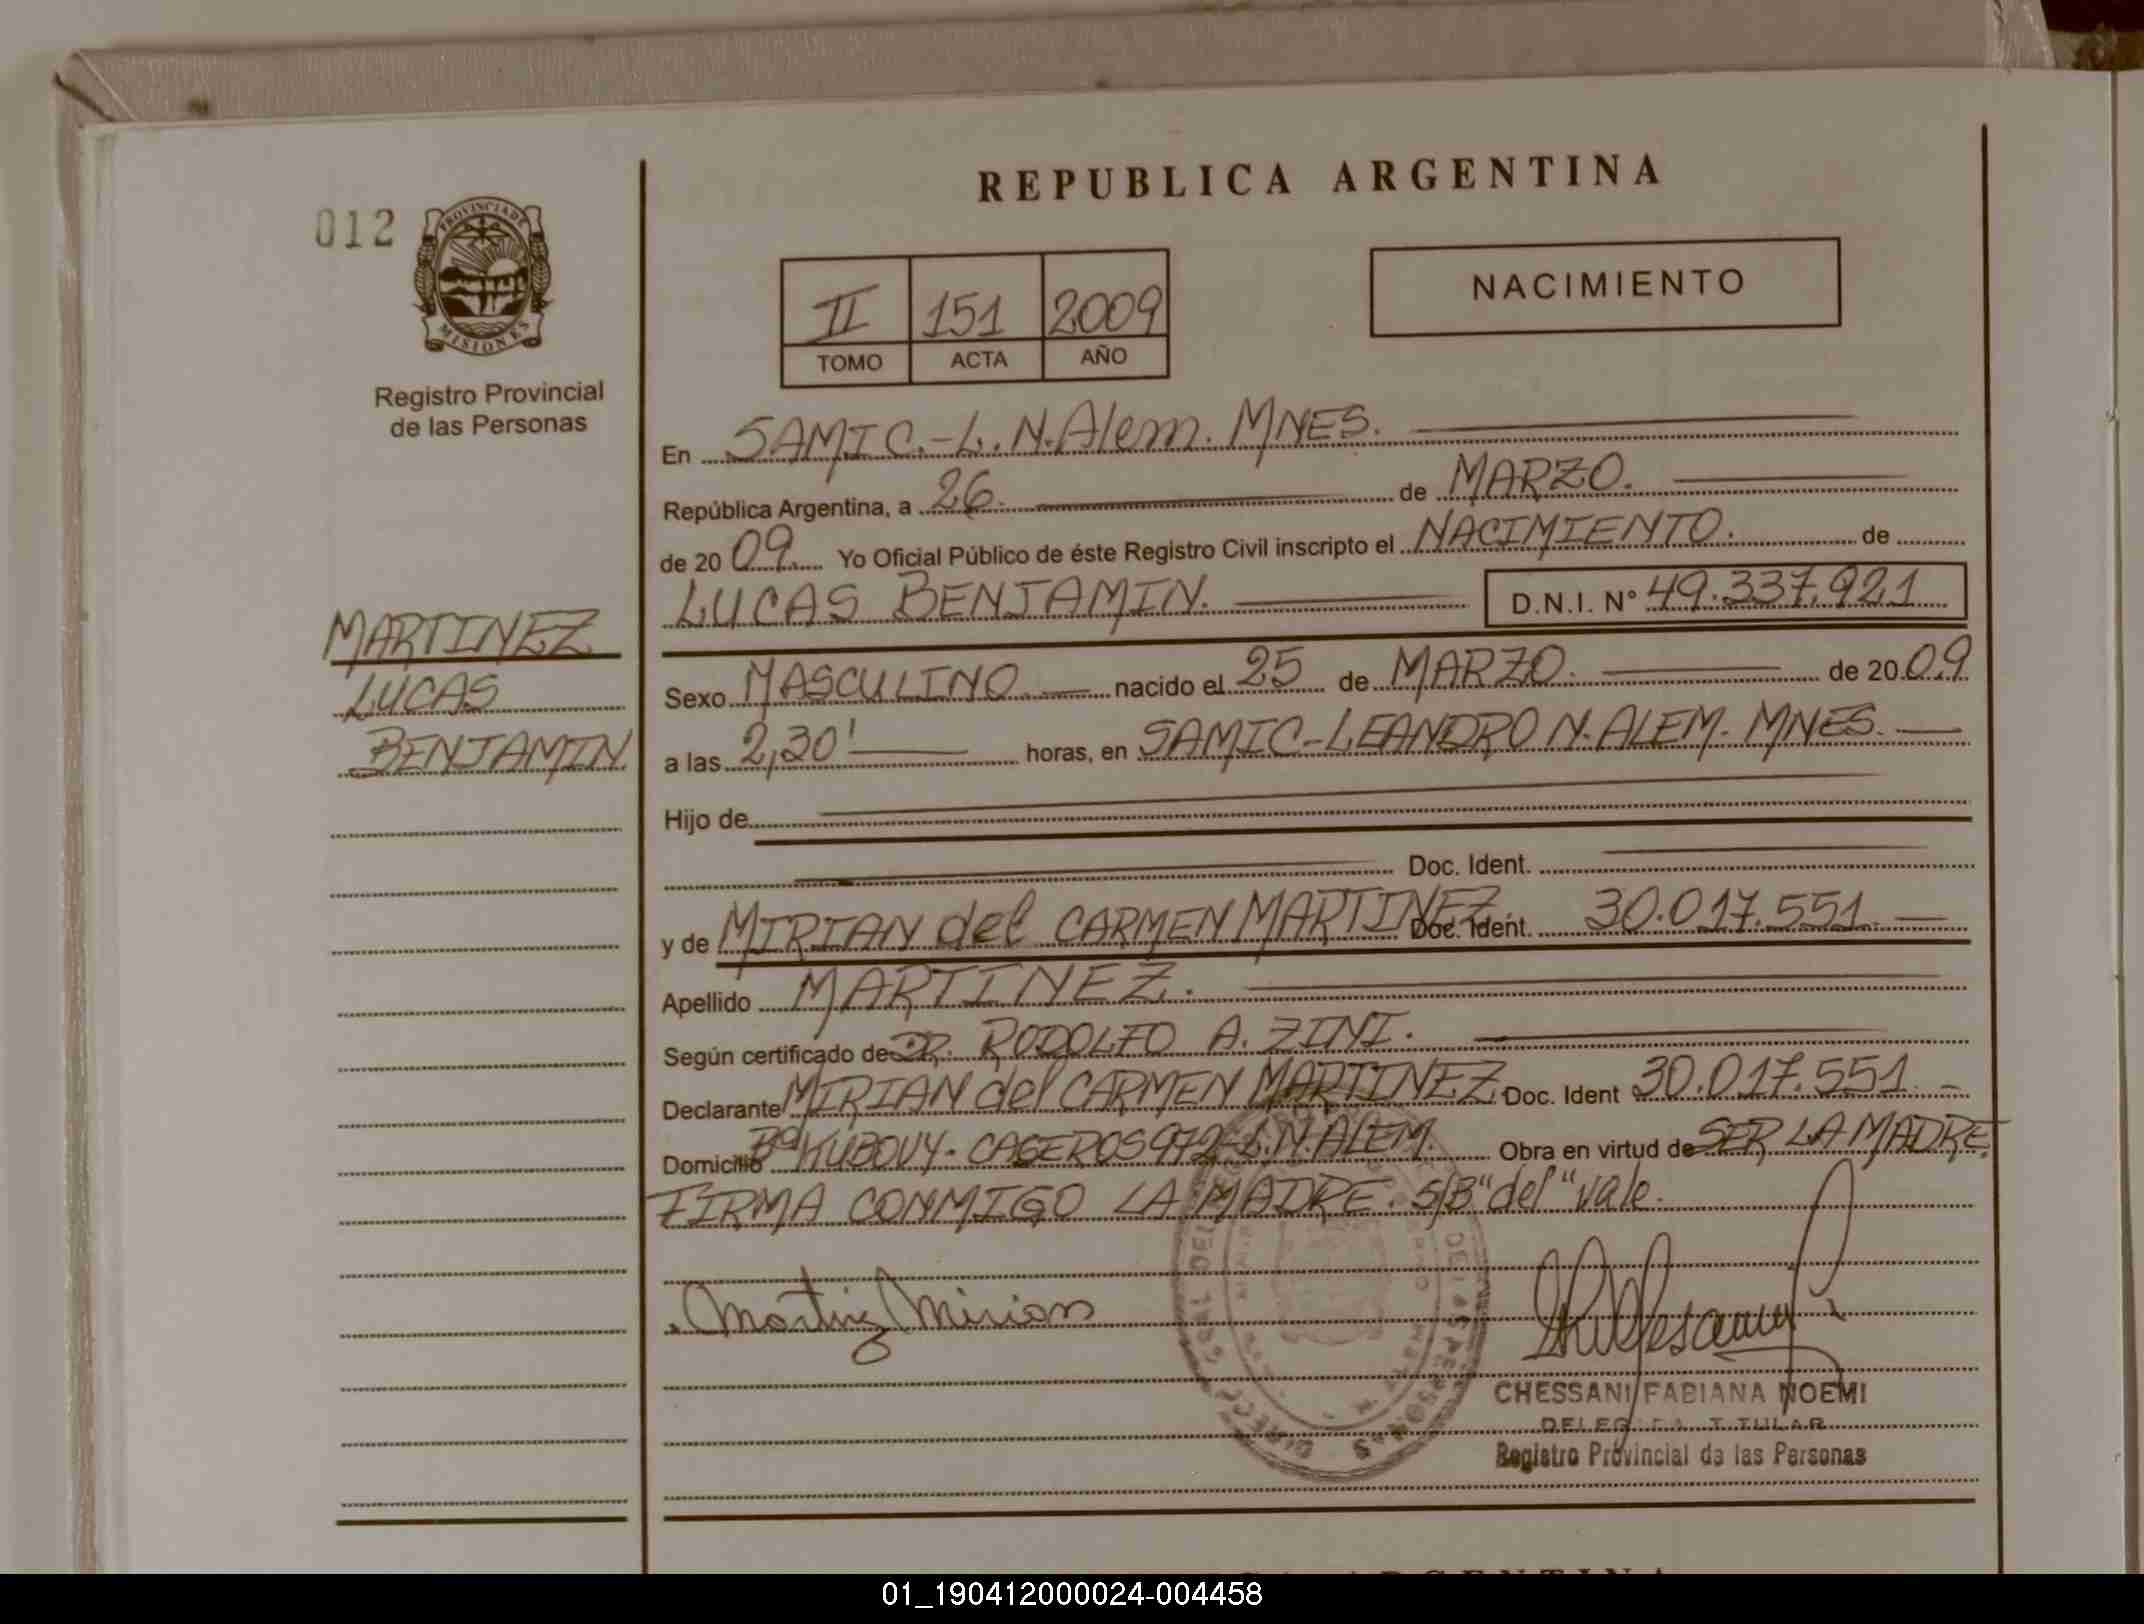 REPUBLICA ARGENTINA
012
PROVINCIA DE
MISIONES
Registro Provincial
de las Personas
II 151 2009
TOMO ACTA AÑO
NACIMIENTO
MARTINEZ
LUCAS
BENJAMIN.
En SAMIC.-L.N.Alem. MNES.
República Argentina, a 26. de MARZO.
de 20 09. Yo Oficial Público de éste Registro Civil inscripto el NACIMIENTO. de
LUCAS BENJAMIN. D.N.I. Nº 49.337.921
Sexo MASCULINO. nacido el 25 de MARZO. de 20 09.
a las 2,30' horas, en SAMIC-LEANDRO N. ALEM. MNES.
Hijo de
Doc. Ident.
y de MIRIAN del CARMEN MARTINEZ. Doc. Ident. 30.017.551.
Apellido MARTINEZ.
Según certificado de DR. RODOLFO A. ZINI.
Declarante MIRIAN del CARMEN MARTINEZ. Doc. Ident 30.017.551.
Domicilio Bº KUBOVY. CASEROS 972-L.N.ALEM. Obra en virtud de SER LA MADRE.
FIRMA CONMIGO LA MADRE. S/B "del" vale.
Martinez Mirian
CHESSANI FABIANA NOEMI
DELEGADA TITULAR
Registro Provincial de las Personas
01_190412000024-004458